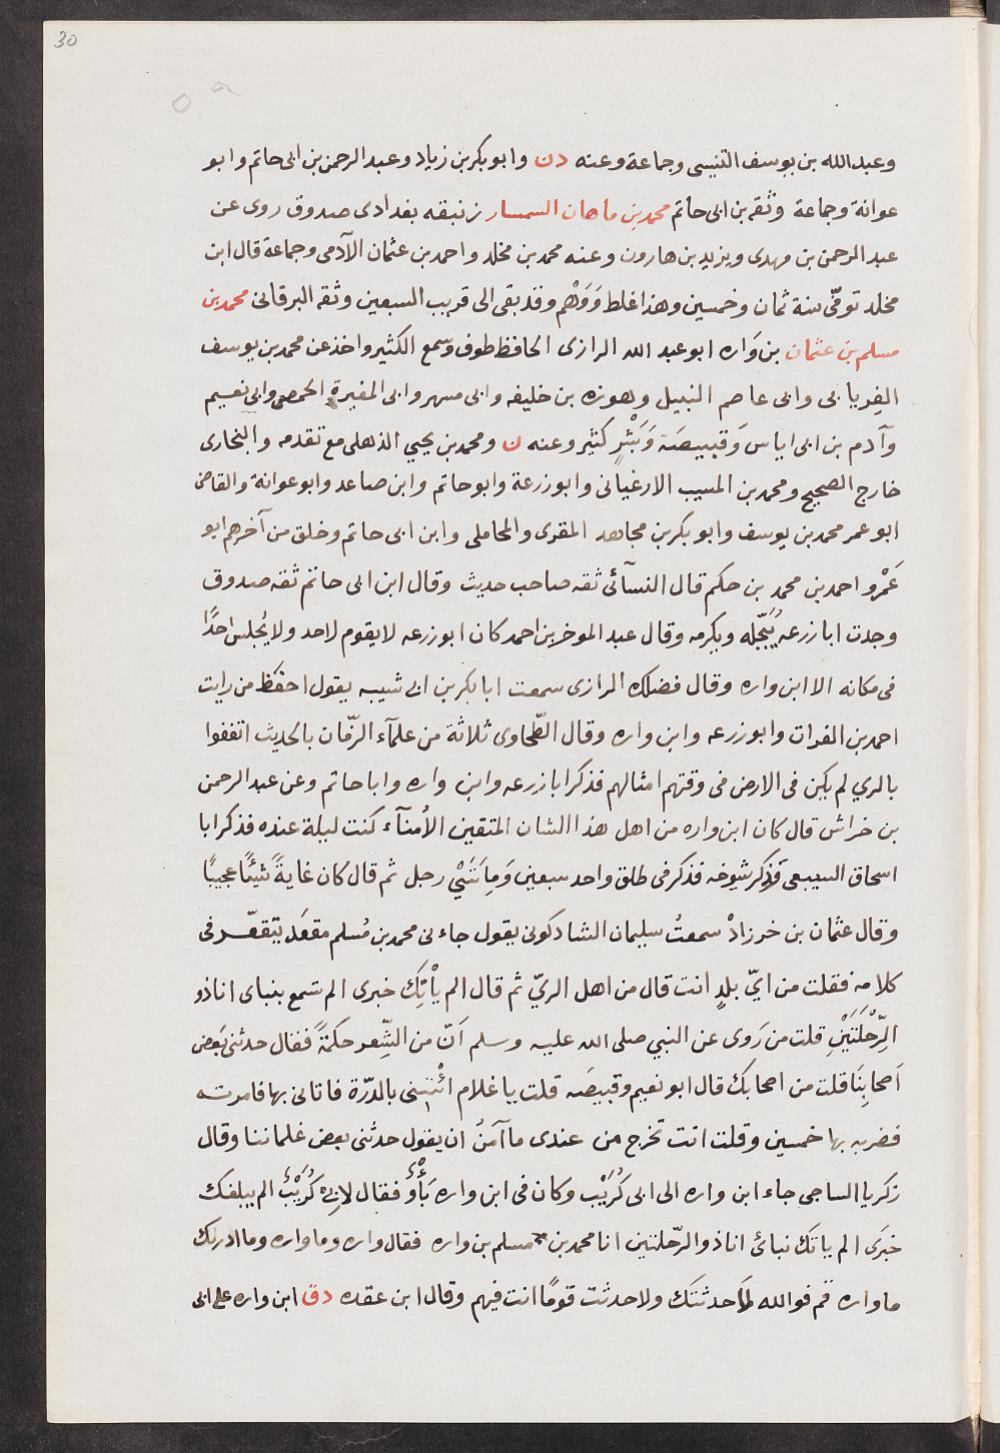 30
وعبد الله بن يوسف التنيسى وجماعة وعنه دن وابو بكر بن زياد وعبد الرحمن بن ابى حاتم وابو
عوانة وجماعة وثقه بن ابى حاتم محمد بن ماهان السمسار زنبقه بغدادى صدوق روى عن
عبد الرحمن بن مهدى ويزيد بن هارون وعنه محمد بن مخلد واحمد بن عثمان الآدمى وجماعة قال ابن
مخلد توفّى سنة ثمان وخمسين وهذا غلط وَوَهْم وقد بقى الى قريب السبعين وثقه البرقانى محمد بن
مسلم بن عثمان بن وَاره ابو عبد الله الرازى الحافظ طوف وسمع الكثير واخذ عن محمد بن يوسف
الفِريابى وابى عاصم النبيل وهوذه بن خليفه وابى مسهر وابى المغيرة الحمصى وابى نعيم
وآدم بن ابى اياس وَقبيصَة وَبَشْرٍ كثير وعنه ن ومحمد بن يحيي الذهلى مع تقدمه والبخارى
خارج الصحيح ومحمد بن المسيب الارغيانى وابو زرعة وابو حاتم وابن صاعد وابو عوانة والقاضى
ابو عمر محمد بن يوسف وابو بكر بن مجاهد المقرى والمحاملى وابن ابى حاتم وخلق من آخرهم ابو
عَمْرو احمد بن محمد بن حكم قال النسآئى ثقه صاحب حديث وقال ابن ابى حاتم ثقه صدوق
وجدت ابا زرعه يُبَجّله ويكرمه وقال عبد الموخر بن احمد كان ابو زرعه لا يقوم لاحد ولا يُجلس احدًا
فى مكانه الا ابن واره وقال فضلك الرازى سمعت ابا بكر بن ابى شيبه يقول احفظ من رايت
احمد بن الفرات وابو زرعه وابن واره وقال الطّحاوى ثلاثة من علمآء الزّمان بالحديث اتفقوا
بالري لم يكن فى الارض فى وقتهم امثالهم فذكر ابا زرعه وابن واره وابا حاتم وعن عبد الرحمن
بن خراش قال كان ابن واره من اهل هذا الشان المتقين الأمنآء كنت ليلة عنده فذكر ابا
اسحاق السبيعى فذكر شيوخه فذكر فى طلق واحد سبعين وَمِائَتَيْ رجل ثم قال كان غايةً شيئًا عجيبًا
وقال عثمان بن خرزاذْ سمعتُ سليمان الشادكونى يقول جاءنى محمد بن مُسلم مقعَد يتقعّر فى
كلامه فقلت من ايّ بلدٍ انت قال من اهل الريّ ثم قال الم يأتِك خبرى الم تسمع بنباى انا ذو
الرِّحْلَتَيْنِ قلت من رَوى عن النبي صلى الله عليه وسلم اَنّ من الشِّعر حكمةً فقال حدثنى بَعض
اَصحابِنَا قلت من اصحابك قال ابو نعيم وقبيصَه قلت يا غلام ائْتِنى بالدرّة فاتانى بها فامرته
فضربه بها خمسين وقلت انت تخرج من عندى ما آمَنُ ان يقول حدثنى بعض غلماننا وقال
زكريا الساجى جاء ابن واره الى ابى كُرَيْب وكان فى ابن واره بَأْوٌ فقال لابى كُرَيْبٍ الم يبلغك
خبَرى الم ياتَك نبائ انا ذو الرّحلتين انا محمد بن مسلم بن واره فقال واره وما واره وما ادريك
ما واره قم فوالله لَا حدثتك ولا حدثت قومًا انت فيهم وقال ابن عقده دق ابن واره على ابى